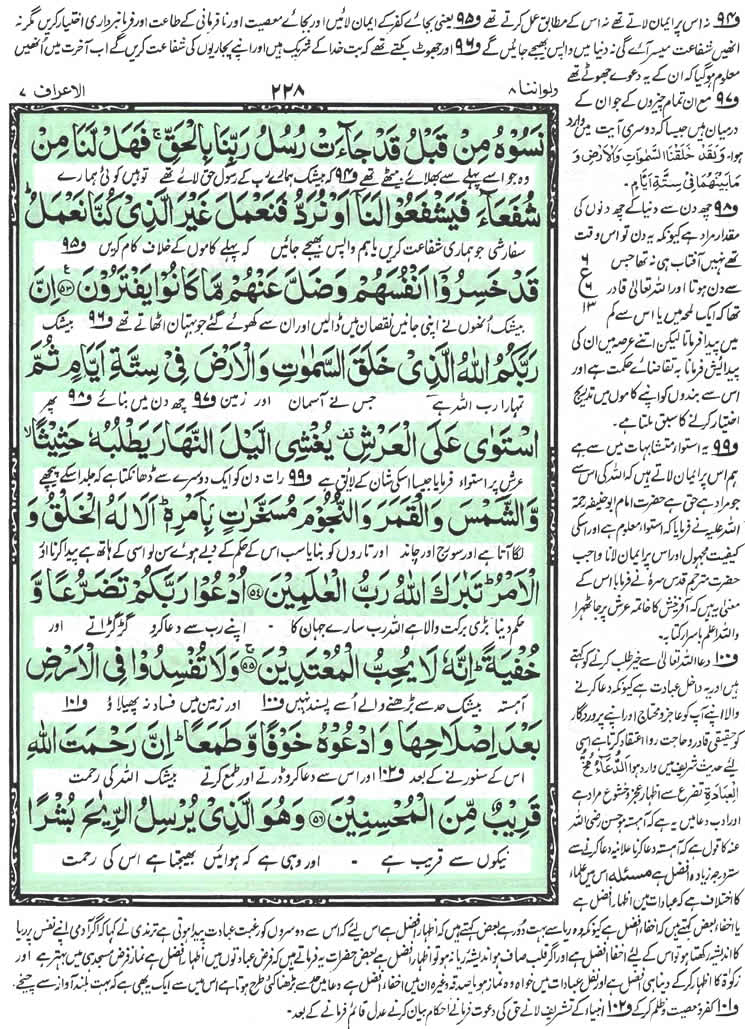 و۹۴ نہ اس پر ایمان لاتے تھے نہ اس کے مطابق عمل کرتے تھے و۹۵ یعنی بجائے کفر کے ایمان لائیں اور بجائے معصیت اور نافرمانی کے طاعت اور فرمانبرداری اختیار کریں مگر نہ
انھیں شفاعت میسر آئے گی نہ دنیا میں واپس بھیجے جائیں گے و۹۶ اور جھوٹ بکتے تھے کہ بت خدا کے شریک ہیں اور اپنے پجاریوں کی شفاعت کریں گے اب آخرت میں انھیں
معلوم ہو گیا کہ ان کے یہ دعوے جھوٹے تھے
ولواننا ۸
۲۲۸
الاعراف ۷
نَسُوْهُ مِنْ قَبْلُ قَدْ جَآءَتْ رُسُلُ رَبِّنَا بِالْحَقِّ ۚ فَهَلْ لَّنَا مِنْ
وہ جو اسے پہلے سے بھلائے بیٹھے تھے و۹۴ کہ بیشک ہمارے رب کے رسول حق لائے تھے تو ہیں کوئی ہمارے
شُفَعَآءَ فَيَشْفَعُوْا لَنَاۤ اَوْ نُرَدُّ فَنَعْمَلَ غَيْرَ الَّذِيْ كُنَّا نَعْمَلُ ؕ
سفارشی جو ہماری شفاعت کریں یا ہم واپس بھیجے جائیں کہ پہلے کاموں کے خلاف کام کریں و۹۵
قَدْ خَسِرُوْۤا اَنْفُسَهُمْ وَضَلَّ عَنْهُمْ مَّا كَانُوْا يَفْتَرُوْنَ ﴿۵۳﴾ اِنَّ
بیشک انھوں نے اپنی جانیں نقصان میں ڈالیں اور ان سے کھوئے گئے جو بہتان اٹھاتے تھے و۹۶ بیشک
رَبَّكُمُ اللّٰهُ الَّذِيْ خَلَقَ السَّمٰوٰتِ وَالْاَرْضَ فِيْ سِتَّةِ اَيَّامٍ ثُمَّ
تمہارا رب اللہ ہے جس نے آسمان اور زمین و۹۷ چھ دن میں بنائے و۹۸ پھر
اسْتَوٰى عَلَى الْعَرْشِ ۟ يُغْشِي الَّيْلَ النَّهَارَ يَطْلُبُهٗ حَثِيْثًا ۙ
عرش پر استواء فرمایا جیسا اسکی شان کے لائق ہے و۹۹ رات دن کو ایک دوسرے سے ڈھانکتا ہے کہ جلد اسکے پیچھے
وَّالشَّمْسَ وَالْقَمَرَ وَالنُّجُوْمَ مُسَخَّرٰتٍۭ بِاَمْرِهٖ ؕ اَلَا لَهُ الْخَلْقُ وَ
لگا آتا ہے اور سورج اور چاند اور تاروں کو بنایا سب اس کے حکم کے دبے ہوئے سن لو اسی کے ہاتھ ہے پیدا کرنا اور
الْاَمْرُ ؕ تَبٰرَكَ اللّٰهُ رَبُّ الْعٰلَمِيْنَ ﴿۵۴﴾ اُدْعُوْا رَبَّكُمْ تَضَرُّعًا وَّ
حکم دینا بڑی برکت والا ہے اللہ رب سارے جہان کا ۔ اپنے رب سے دعا کرو گڑگڑاتے اور
خُفْيَةً ؕ اِنَّهٗ لَا يُحِبُّ الْمُعْتَدِيْنَ ﴿۵۵﴾ وَلَا تُفْسِدُوْا فِي الْاَرْضِ
آہستہ بیشک حد سے بڑھنے والے اُسے پسند نہیں و۱۰۰ اور زمین میں فساد نہ پھیلاؤ و۱۰۱
بَعْدَ اِصْلَاحِهَا وَادْعُوْهُ خَوْفًا وَّطَمَعًا ؕ اِنَّ رَحْمَتَ اللّٰهِ
اس کے سنورنے کے بعد و۱۰۲ اور اس سے دعا کرو ڈرتے اور طمع کرتے بیشک اللہ کی رحمت
قَرِيْبٌ مِّنَ الْمُحْسِنِيْنَ ﴿۵۶﴾ وَهُوَ الَّذِيْ يُرْسِلُ الرِّيٰحَ بُشْرًۢا
نیکوں سے قریب ہے ۔ اور وہی ہے کہ ہوائیں بھیجتا ہے اس کی رحمت
و۹۷ مع ان تمام چیزوں کے جو ان کے
درمیان ہیں جیسا کہ دوسری آیت میں وارد
ہوا۔ وَلَقَدْ خَلَقْنَا السَّمٰوٰتِ وَالْاَرْضَ وَ
مَا بَيْنَهُمَا فِيْ سِتَّةِ اَيَّامٍ۔
و۹۸ چھ دن سے دنیا کے چھ دنوں کی
مقدار مراد ہے کیونکہ یہ دن تو اس وقت
تھے نہیں آفتاب ہی نہ تھا جس
سے دن ہوتا اور اللہ تعالیٰ قادر
تھا کہ ایک لمحہ میں یا اس سے کم
میں پیدا فرماتا لیکن اتنے عرصہ میں ان کی
پیدائش فرمانا بہ تقاضائے حکمت ہے اور
اس سے بندوں کو اپنے کاموں میں تدریج
اختیار کرنے کا سبق ملتا ہے۔
۶
ع
۶
۱۳
و۹۹ یہ استواء متشابہات میں سے ہے
ہم اس پر ایمان لاتے ہیں کہ اللہ کی اس سے
جو مراد ہے حق ہے حضرت امام ابوحنیفہ رحمۃ
اللہ علیہ نے فرمایا کہ استواء معلوم ہے اور اسکی
کیفیت مجہول اور اس پر ایمان لانا واجب
حضرت مترجم قدس سرہٗ نے فرمایا اس کے
معنیٰ یہ ہیں کہ آفرینش کا خاتمہ عرش پر جا ٹھہرا
واللہ اعلم باسرار کتابہ۔
و۱۰۰ دعا اللہ تعالیٰ سے خیر طلب کرنے کو کہتے
ہیں اور یہ داخل عبادت ہے کیونکہ دعا کرنے
والا اپنے آپ کو عاجز و محتاج اور اپنے پروردگار
کو حقیقی قادر و حاجت روا اعتقاد کرتا ہے اسی
لئے حدیث شریف میں وارد ہوا اَلدُّعَاءُ مُخُّ
الْعِبَادَةِ تضرع سے اظہار عجز و خشوع مراد ہے
اور ادب دعا میں یہ ہے کہ آہستہ ہو حسن رضی اللہ
عنہ کا قول ہے کہ آہستہ دعا کرنا علانیہ دعا کرنے سے
ستر درجہ زیادہ افضل ہے مسئلہ اس میں علماء
کا اختلاف ہے کہ عبادات میں اظہار افضل ہے
یا اخفا بعض کہتے ہیں کہ اخفا افضل ہے کیونکہ وہ ریا سے بہت دور ہے بعض کہتے ہیں کہ اظہار افضل ہے اس لئے کہ اس سے دوسروں کو رغبت عبادت پیدا ہوتی ہے ترمذی نے کہا کہ اگر آدمی اپنے نفس پر ریا
کا اندیشہ رکھتا ہو تو اس کے لئے اخفا افضل ہے اور اگر قلب صاف ہو اندیشہ ریا نہ ہو تو اظہار افضل ہے بعض حضرات یہ فرماتے ہیں کہ فرض عبادتوں میں اظہار افضل ہے نماز فرض مسجد ہی میں بہتر ہے اور
زکوٰۃ کا اظہار کر کے دینا ہی افضل ہے اور نفل عبادات میں خواہ وہ نماز ہو یا صدقہ وغیرہ ان میں اخفا افضل ہے دعا میں حد سے بڑھنا کئی طرح ہوتا ہے اس میں سے ایک یہ بھی ہے کہ بہت بلند آواز سے چیخے۔
و۱۰۱ کفر و معصیت و ظلم کر کے و۱۰۲ انبیاء کے تشریف لانے حق کی دعوت فرمانے احکام بیان کرنے عدل قائم فرمانے کے بعد۔